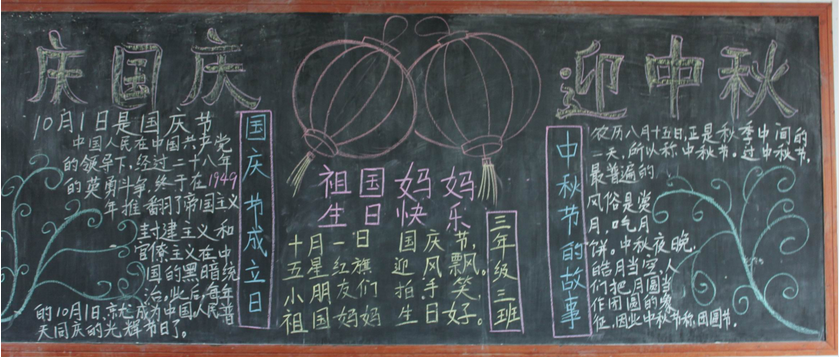 庆国庆
迎中秋
10月1日是国庆节
中国人民在中国共产党
的领导下,经过二十八年
的英勇斗争,终于在1949
年推翻了帝国主义
封建主义和
官僚主义在中
国的黑暗统
治,此后,每年
的10月1日,就成为中国人民普
天同庆的光辉节日了。
国庆节成立日
祖国妈妈
生日快乐
十月一日 国庆节,
五星红旗 迎风飘。
小朋友们 拍手笑,
祖国妈妈 生日好。
三年级三班
中秋节的故事
农历八月十五日,正是秋季中间的
一天,所以称中秋节。过中秋节,
最普遍的
风俗是赏
月,吃月
饼。中秋夜晚,
皓月当空,人
们把月圆当
作团圆的象
征,因此中秋节称团圆节。